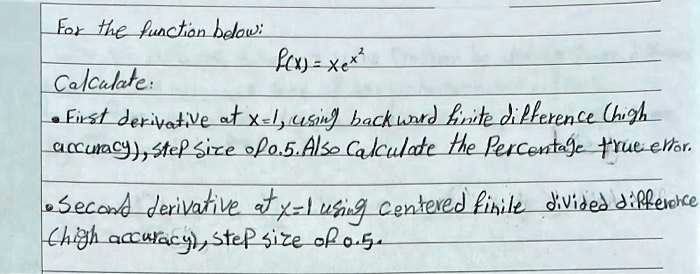 For the function below:
f(x) = xeˣ²
Calculate:
• First derivative at x=1, using backward finite difference (high
accuracy), step size of 0.5. Also Calculate the Percentage true error.
• Second derivative at x=1 using centered finite divided difference
(high accuracy), step size of 0.5.